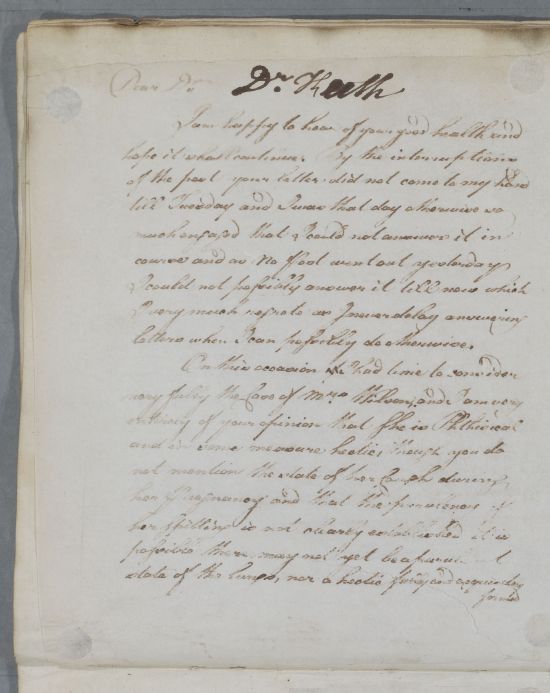 Dear Dr
Dr Keith
I am happy to hear of your good health and
hope it shall continue. By the interruptions
of the post your letter did not come to my hand
till Tuesday and I was that day otherwise so
much engaged that I could not answer it in
course and as no Post went out yesterday
I could not possibly answer it till now which
I very much regrete as I never delay answering
letters when I can possibly do otherwise.
On this occasion I've had time to consider
very fully the Case of Mrs and I am very
entirely of your opinion that she is Phthisical
and in some measure hectic, though you do
not mention the state of her Cough during
her Pregnancy and that the purulence of
her spitting is not clearly established it is
possible there may not yet be a purulent
state of the lungs, nor a hectic
formed